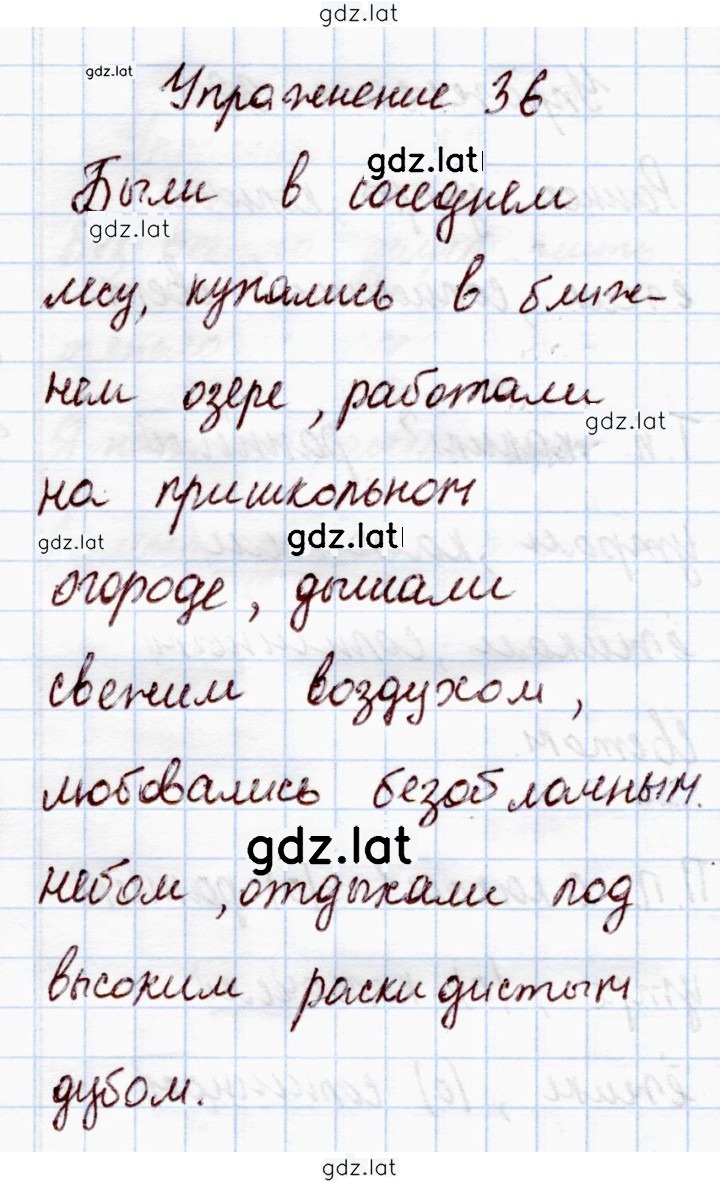 gdz.lat
gdz.lat
Упражнение 36
gdz.lat
Были в соседнем
gdz.lat
лесу, купались в ближ-
нем озере, работали
gdz.lat
на пришкольном
gdz.lat
gdz.lat
огороде, дышали
свежим воздухом,
любовались безоблачным
gdz.lat
небом, отдыхали под
высоким раскидистым
дубом.
gdz.lat